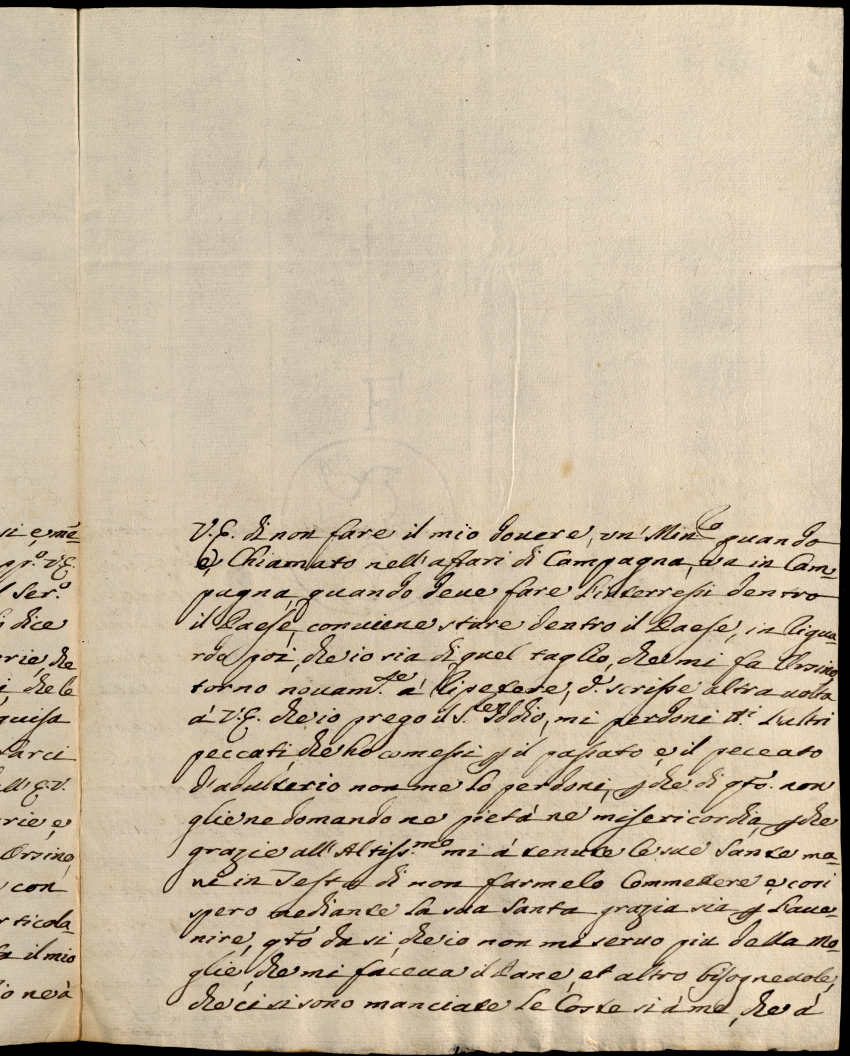 si e, mē
pr.º V.E.
l Ser.º
i dice
erie, che
i, che le
quisa
rarci
ell'E.V.
erie e,
Orsino,
con
rticola-
fa il mio
io ne à
V.E. di non fare il mio dovere, un' Min.º quando
è, Chiamato nell'affari di Campagna, va in Cam-
pagna, quando deve fare L'interressi dentro
il Paese, conviene stare dentro il Paese, in rigua-
rdo poi, che io sia di quel taglio, che mi fa Orsino,
torno novam.te a' ripetere, d. scrisse altra volta
à V.E. che io prego il S.re Iddio, mi perdoni tt.i L'altri
peccati, che ho comessi p il passato, e, il peccato
d'adulterio non me lo perdoni, p che di qto. non
gliene domando ne pietà ne misericordia, p che
grazie all'Altiss.mo mi à tenute le sue Sante ma-
ni in Testa di non farmelo Commettere e, così
spero mediante la sua Santa grazia sia p L'ave-
nire, qto da si, che io non mi servo più della Mo-
glie, che mi faceva il Pane, et altro bisognevole,
che ci si sono manciate Le Coste si à me, che à